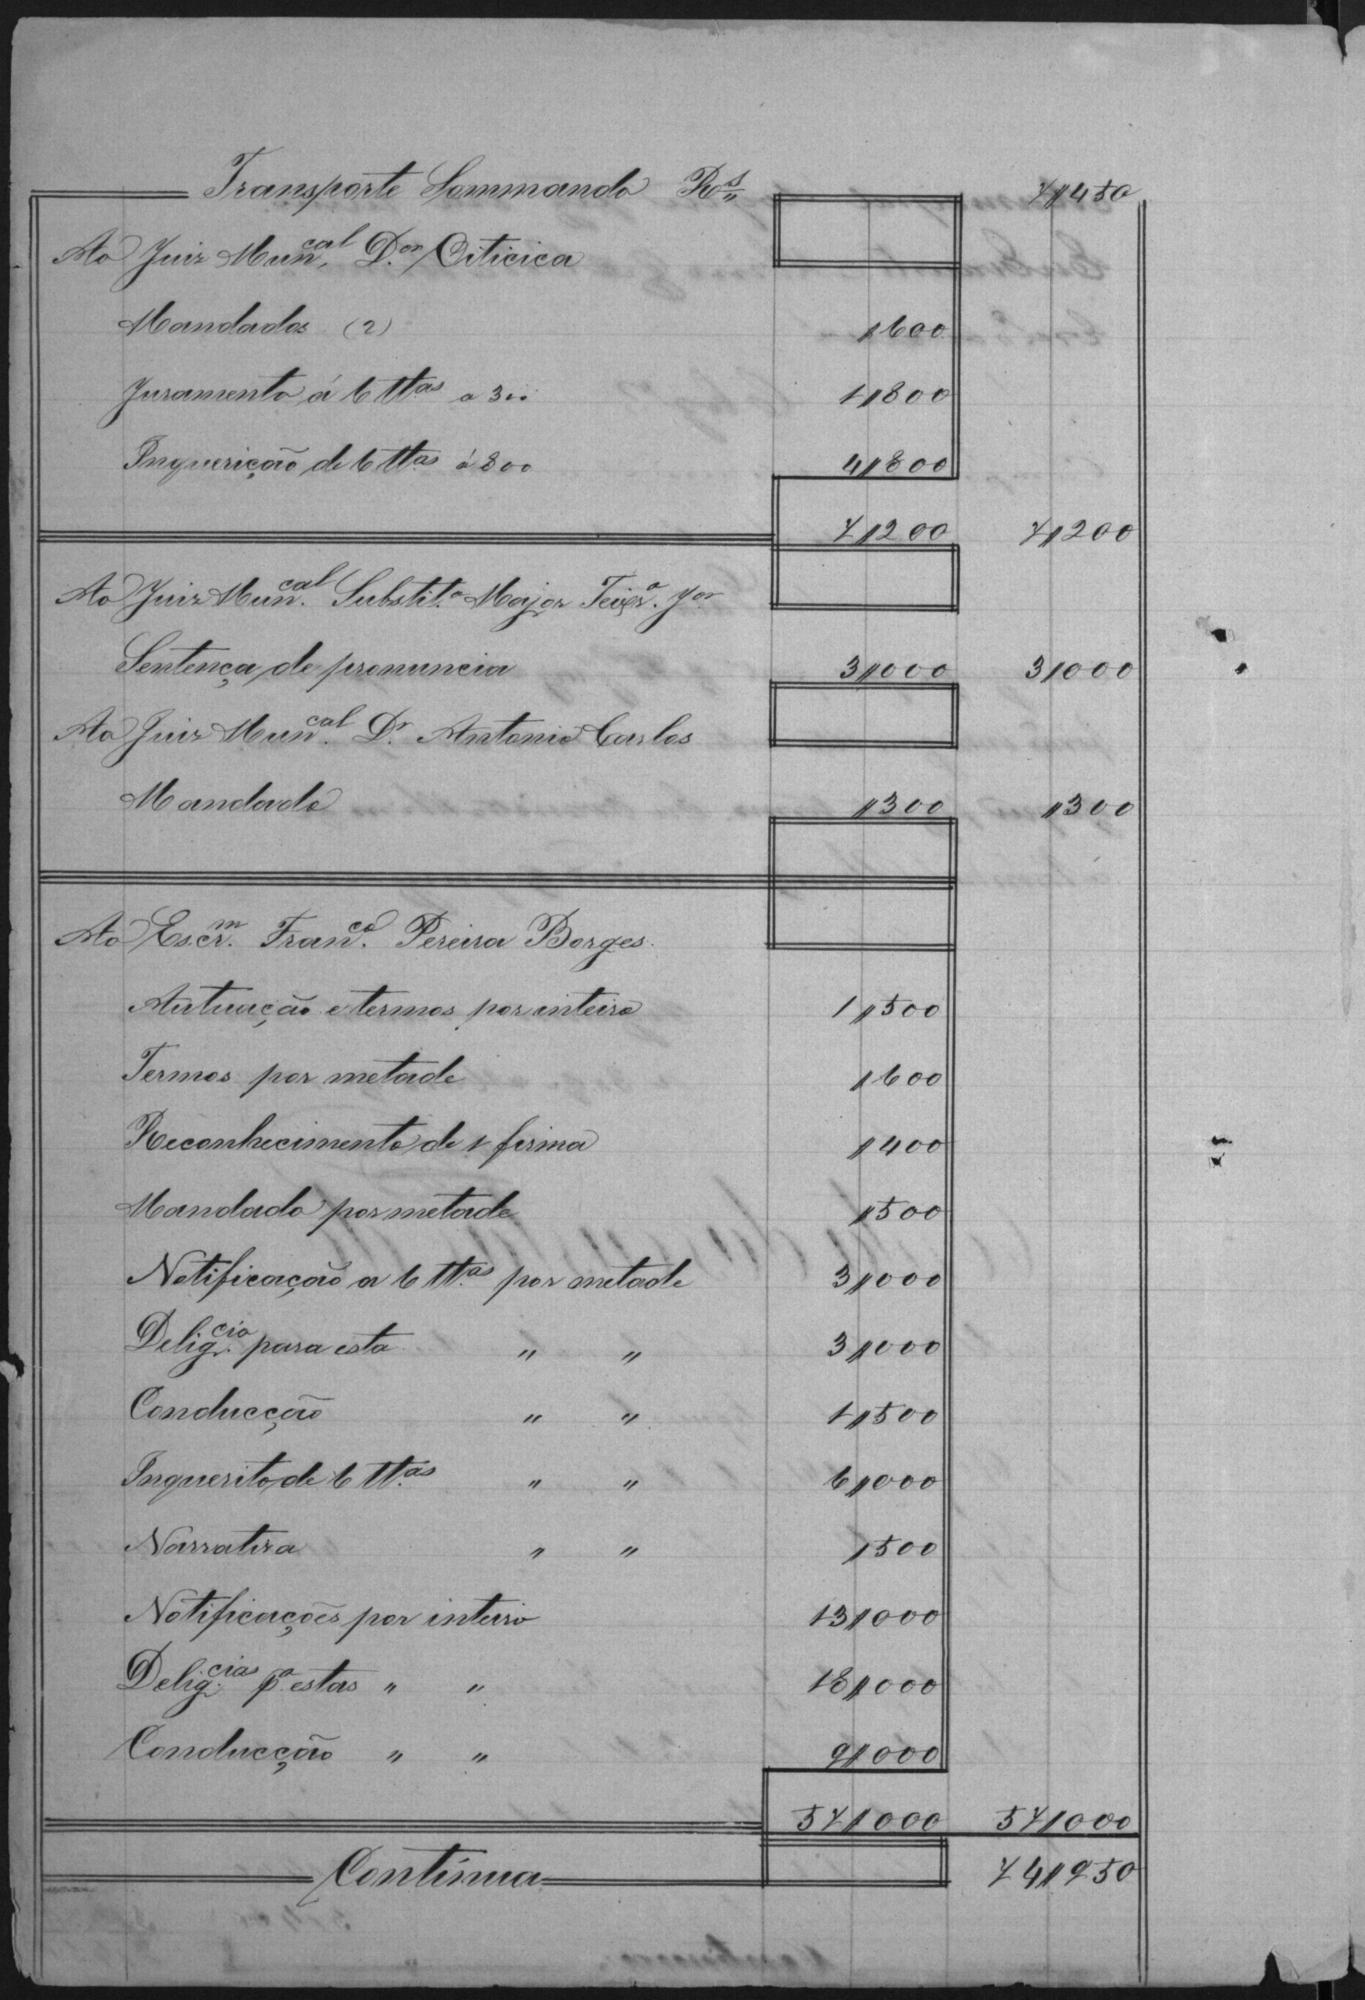 Transporte Sommando Rs 7$450
Ao Juiz Muncal Dor Oiticica
Mandados (2) $600
Juramento á 6 ttas a 300 1$800
Inquerição de 6 ttas á 800 4$800
7$200 7$200
Ao Juiz Muncal. Substito. Major Teixra. Jor
Sentença de pronuncia 3$000 3$000
Ao Juiz Muncal. Dr. Antonio Carlos
Mandado $300 $300
Ao Escrm. Franco. Pereira Borges
Autuação e termos por inteiro 1$500
Termos por metade $600
Reconhecimento de 1 firma $400
Mandado por metade $500
Notificação a 6 ttas por metade 3$000
Deligcia. para esta " " 3$000
Conducção " " 1$500
Inquerito de 6 ttas " " 6$000
Narrativa " " $500
Notificações por inteiro 13$000
Deligcias. pa estas " " 18$000
Conducção " " 9$000
57$000 57$000
Contínua 74$950